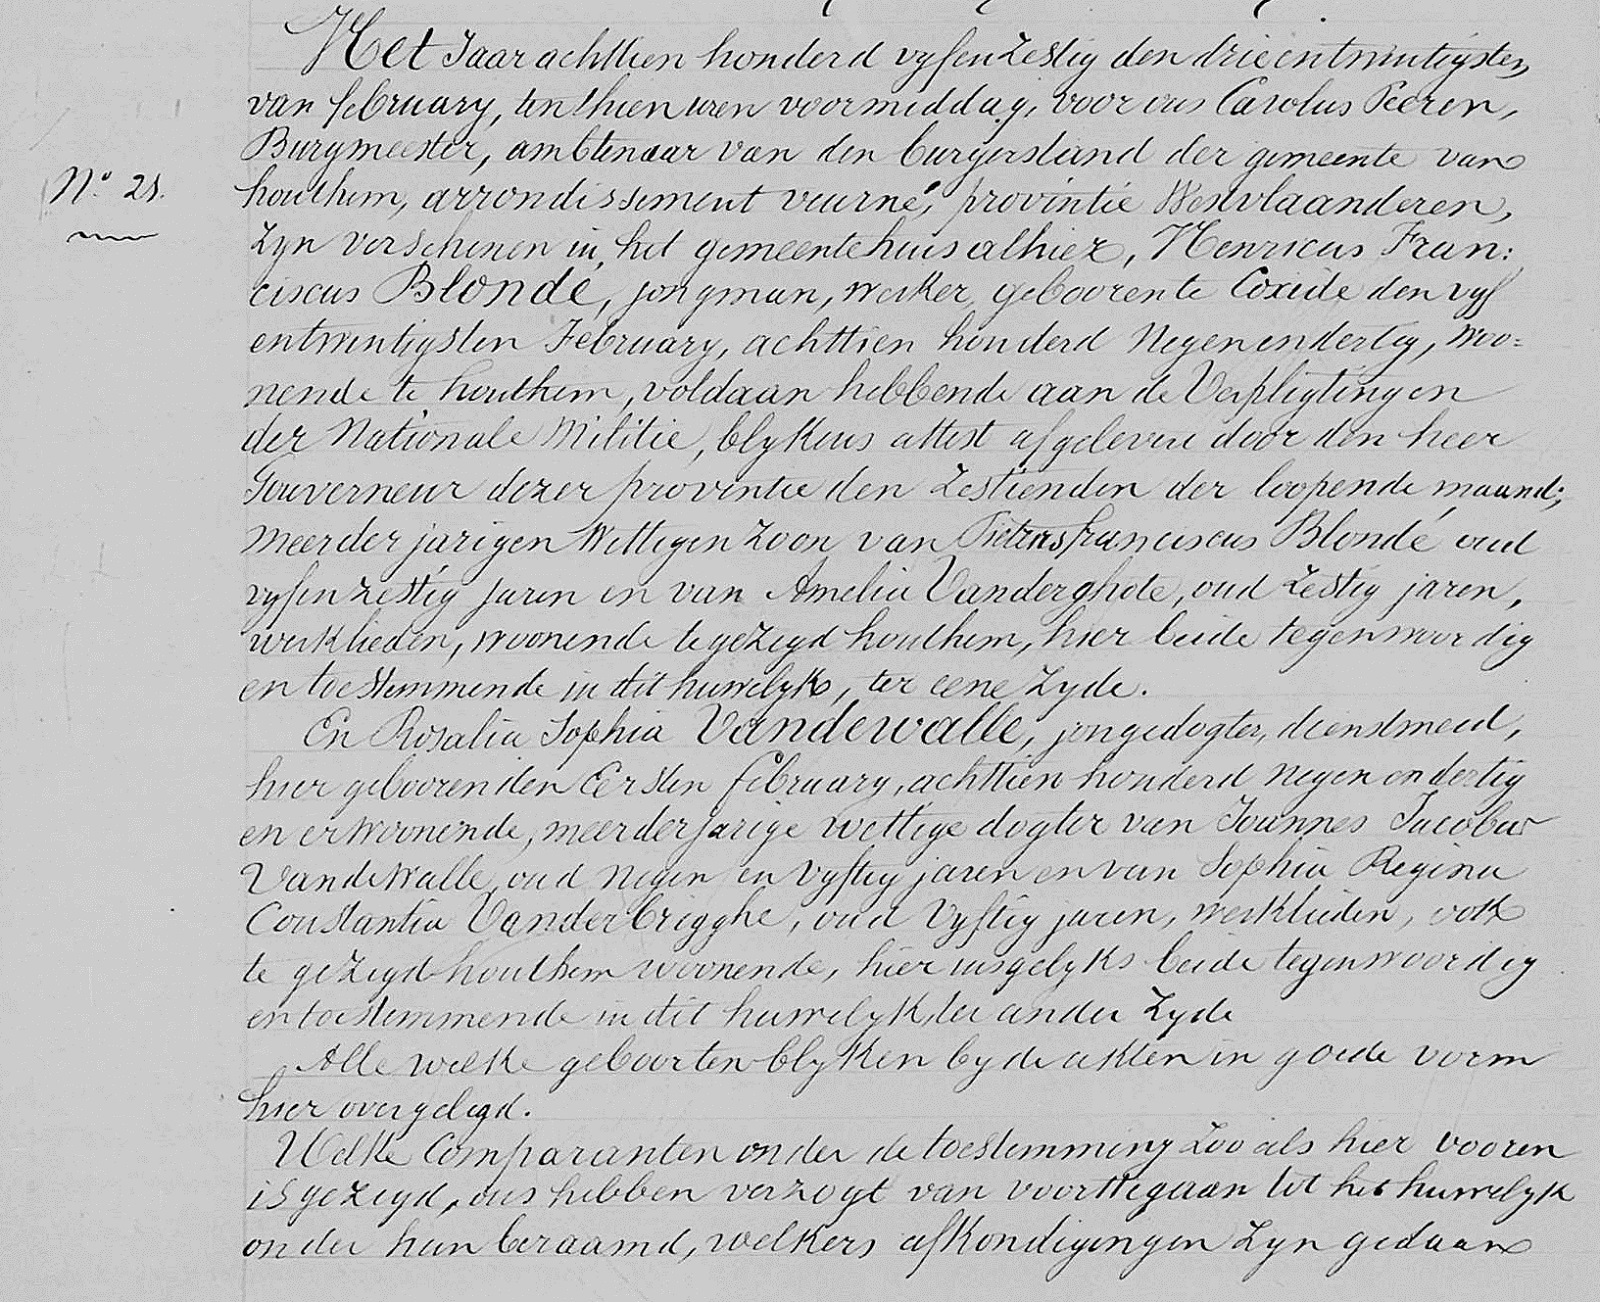 Het Jaar achttien honderd vyfenzestig den drieentwintigsten
van february, ten thien uren voormiddag, voor ons Carolus Peeren,
Burgmeester, ambtenaar van den burgerstand der gemeente van
N° 21. houthem, arrondissement veurne, provintie Westvlaanderen,
Zyn verschenen in het gemeentehuis alhier, Henricus Fran:
ciscus Blondé, jongman, werker, geboren te Coxide den vyf
entwintigsten February, achttien honderd Negenendertig, woo=
nende te houthem, voldaan hebbende aan de Verpligtingen
der Nationale Militie, blykens attest afgeleverd door den heer
Gouverneur dezer provintie den Zestienden der loopende maand;
meerderjarigen Wettigen Zoon van Pietrus franciscus Blondé oud
vyfenzestig jaren en van Amelia Vanderghote, oud Zestig jaren,
werklieden, woonende te gezegd houthem, hier beide tegenwoordig
en toestemmende in dit huwelyk, ter eene Zyde.
En Rosalia Sophia Vandewalle, jongedogter, dienstmeid,
hier geboren den Eersten february, achttien honderd negen en dertig
en er woonende, meerderjarige wettige dogter van Joannes Jacobus
VandeWalle, oud negen en Vyftig jaren en van Sophia Regina
Constantia Vanderbrigghe, oud Vyftig jaren, werklieden, ook
te gezegd houthem woonende, hier insgelyks beide tegenwoordig
en toestemmende in dit huwelyk, ter ander Zyde
Alle welke geboorten blyken by de akten in goede vorm
hier overgelegd.
Welke Comparanten onder de toestemming Zoo als hier vooren
is gezegd, ons hebben verzogt van voorttegaan tot het huwelyk
onder hun beraamd, welkers afkondigingen Zyn gedaan